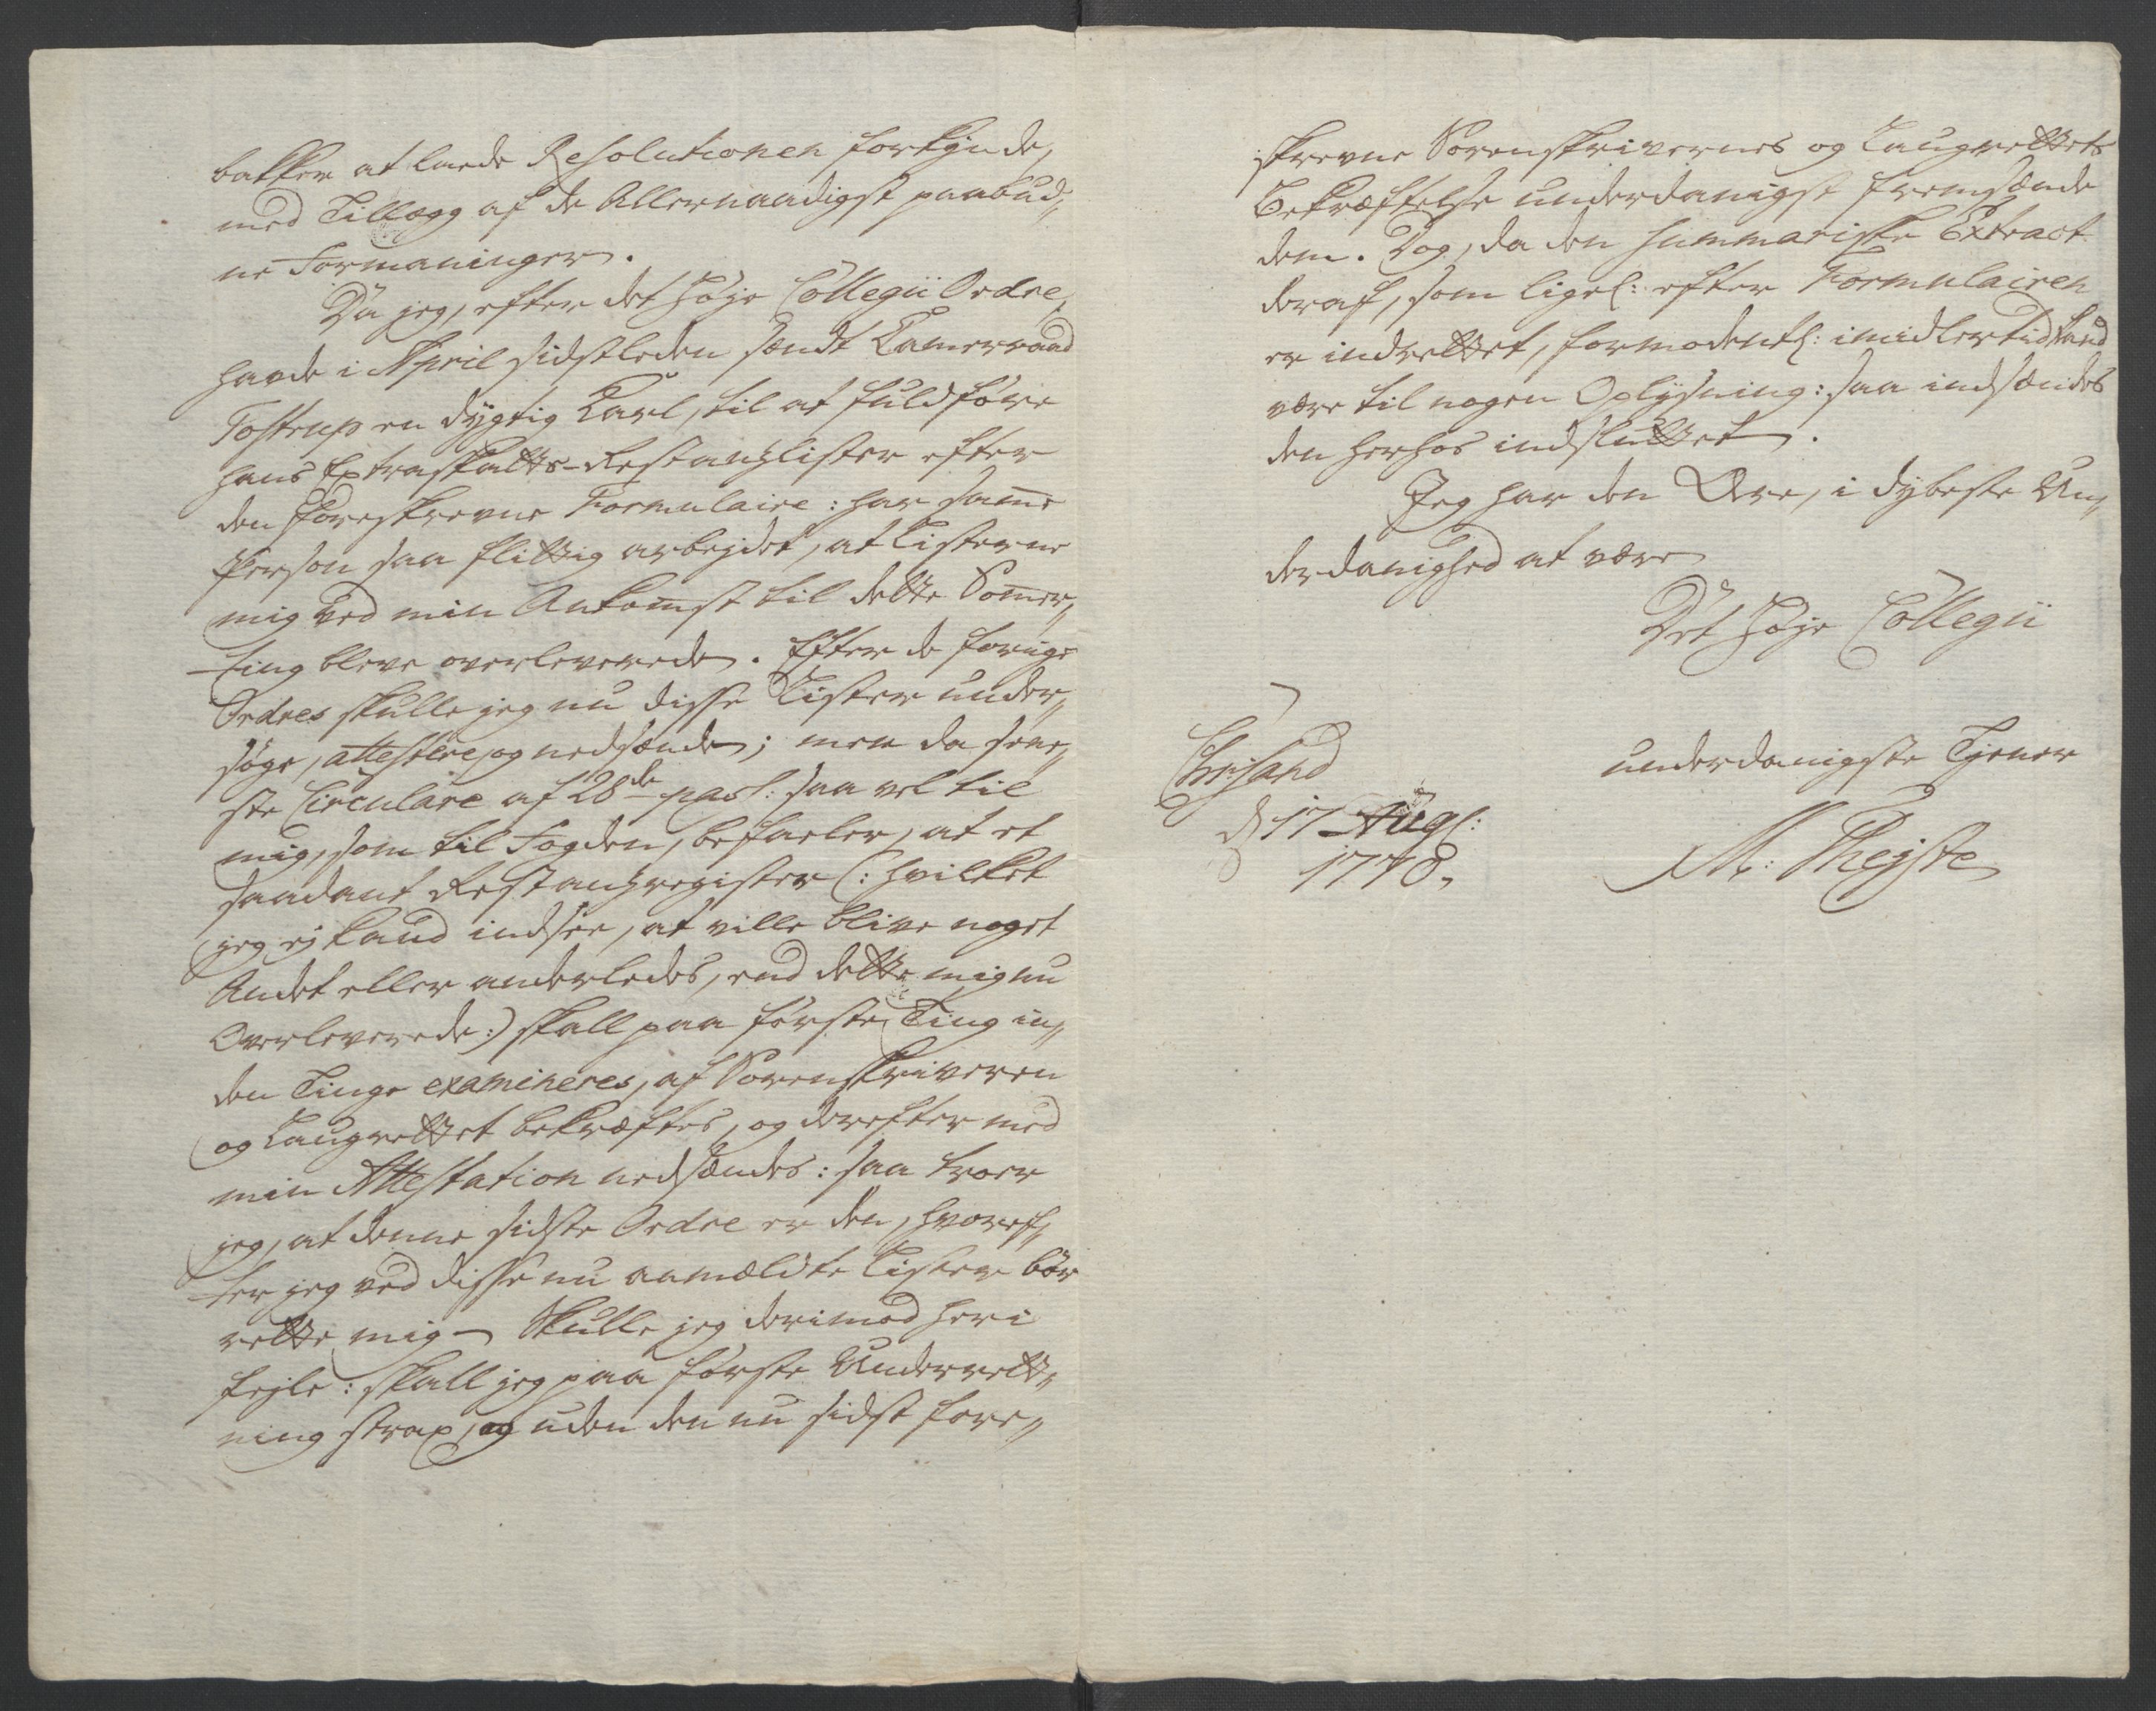 bakker at lade Resolutionen forkynde,
med Tillægg af de Allernaadigst paabud„
ne Formaninger.
Da jeg, efter det høje Collegii Ordre,
havde i April sidstleden sendt Camerraad
Tostrup en dygtig Karl, til at fuldføre
hans Extraskatts-Restanzlister efter
den foreskrevne Formulaire: har samme
Person saa flittig arbejdet, at Listerne
mig ved min Ankomst til dette Sommer„
ting bleve overleverede. Efter de forige
Ordres skulle jeg nu disse Lister under„
søge, attestere, og nedsænde; men da sene„
ste Circulare af 28de pass: saa vel til
mig, som til Fogden, befaler, at et
saadant Restanzregister (: hvilket
jeg ej kand indsee, at ville blive noget
Andet eller anderledes, end dette mig nu
Overleverede:) skall paa første Ting in„
den Tinge examineres, af Sorenskriveren
og Laugrettet bekræftes, og derefter med
min Attestation nedsændes: saa troer
jeg, at denne sidste Ordre er den, hvoref„
ter jeg ved disse nu anmeldte Lister bør
rette mig – Skulle jeg derimod heri
fejle: skall jeg paa første Underrett„
ning strax, og uden den nu sidst fore„
skrevne Sorenskrivernes og Laugrettets
Bekræftelse underdanigst fremsænde
dem. Dog, da den summariske Extract
deraf, som ligel: efter Formulairen
er indrettet, formodentl: imidlertid kand
være til nogen Oplysning: saa indsændes
den herhos indsluttet.
Jeg har den Ære, i dybeste Un„
derdanighed at være
Det høje Collegii
underdanigste Tjener
Chrsand
d 17 Aug:
1778.
M: Thejste